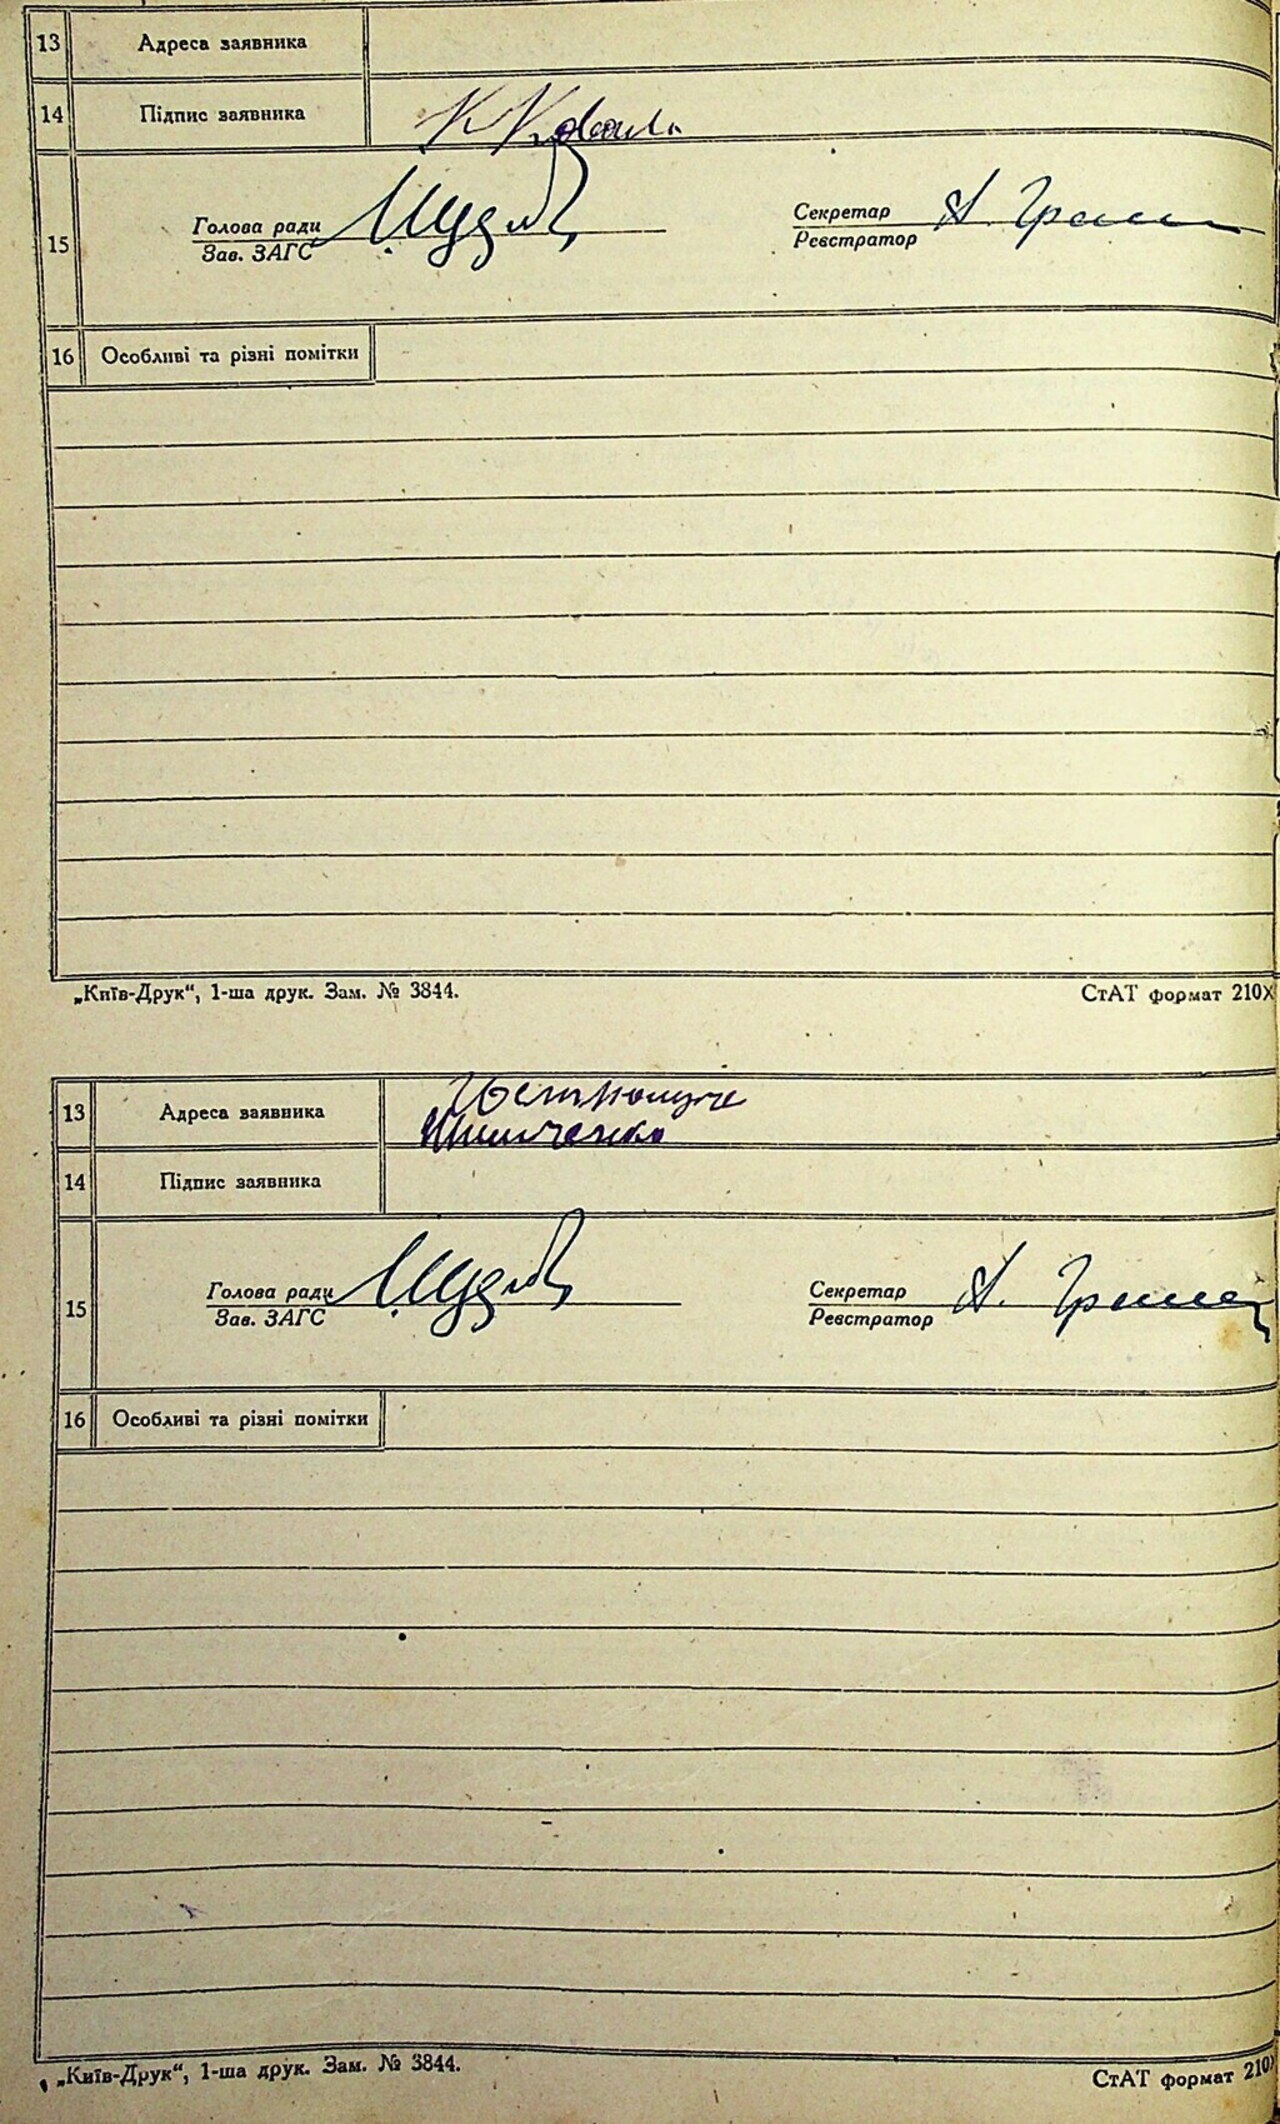 13 Адреса заявника
14 Підпис заявника К Коваль
15 Голова ради Секретар
Зав. ЗАГС Реєстратор
16 Особливі та різні помітки
„Київ-Друк“, 1-ша друк. Зам. № 3844. СтАТ формат 210X
13 Адреса заявника
14 Підпис заявника
15 Голова ради Секретар
Зав. ЗАГС Реєстратор
16 Особливі та різні помітки
„Київ-Друк“, 1-ша друк. Зам. № 3844. СтАТ формат 210X